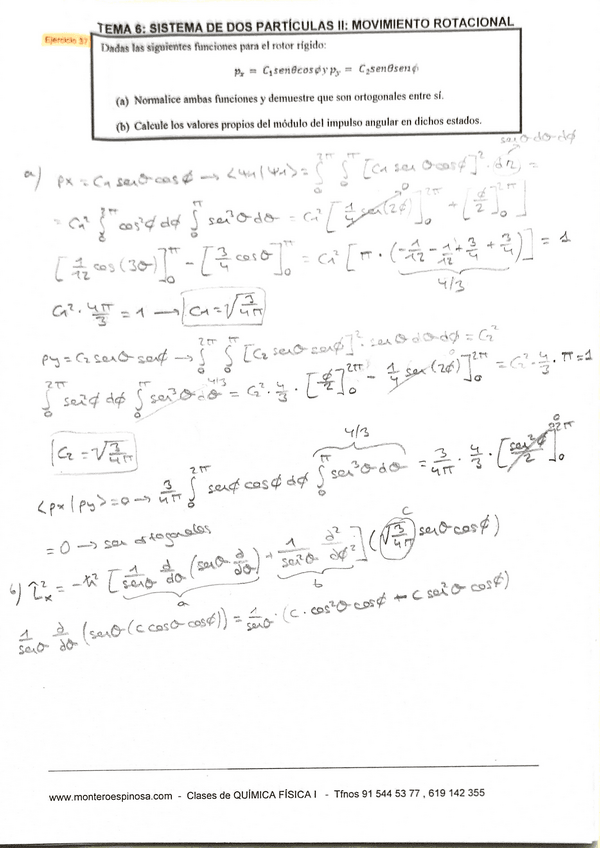 TEMA 6: SISTEMA DE DOS PARTÍCULAS II: MOVIMIENTO ROTACIONAL
Ejercicio 37
Dadas las siguientes funciones para el rotor rígido:
pₓ = C₁senθcosϕ y p_y = C₂senθsenϕ
(a) Normalice ambas funciones y demuestre que son ortogonales entre sí.
(b) Calcule los valores propios del módulo del impulso angular en dichos estados.
senθ dθ dϕ
a) px = C₁ senθ cosϕ → <Ψ₁|Ψ₁> = ∫₀^2π ∫₀^π [C₁ senθ cosϕ]² · dΩ =
= C₁² ∫₀^2π cos²ϕ dϕ ∫₀^π sen³θ dθ = C₁² [[1/4 sen(2ϕ)]₀^2π + [ϕ/2]₀^2π]
[1/12 cos(3θ)]₀^π - [3/4 cosθ]₀^π = C₁² [π · (-1/12 - 1/12 + 3/4 + 3/4)] = 1
4/3
C₁² · 4π/3 = 1 → C₁ = √(3/4π)
py = C₂ senθ senϕ → ∫₀^2π ∫₀^π [C₂ senθ senϕ]² · senθ dθ dϕ = C₂²
∫₀^2π sen²ϕ dϕ ∫₀^π sen³θ dθ = C₂² · 4/3 · [ϕ/2]₀^2π - [1/4 sen(2ϕ)]₀^2π = C₂² · 4/3 · π = 1
C₂ = √(3/4π)
4/3
<px|py> = 0 → 3/4π ∫₀^2π senϕ cosϕ dϕ ∫₀^π sen³θ dθ = 3/4π · 4/3 · [sen²ϕ/2]₀^2π
= 0 → son ortogonales
b) L̂ₓ² = -ħ² [1/senθ d/dθ (senθ d/dθ) + 1/sen²θ d²/dϕ²] (√(3/4π) senθ cosϕ)
a b c
1/senθ d/dθ (senθ (c cosθ cosϕ)) = 1/senθ · (c · cos²θ cosϕ - c sen²θ cosϕ)
www.monteroespinosa.com - Clases de QUÍMICA FÍSICA I - Tfnos 91 544 53 77 , 619 142 355